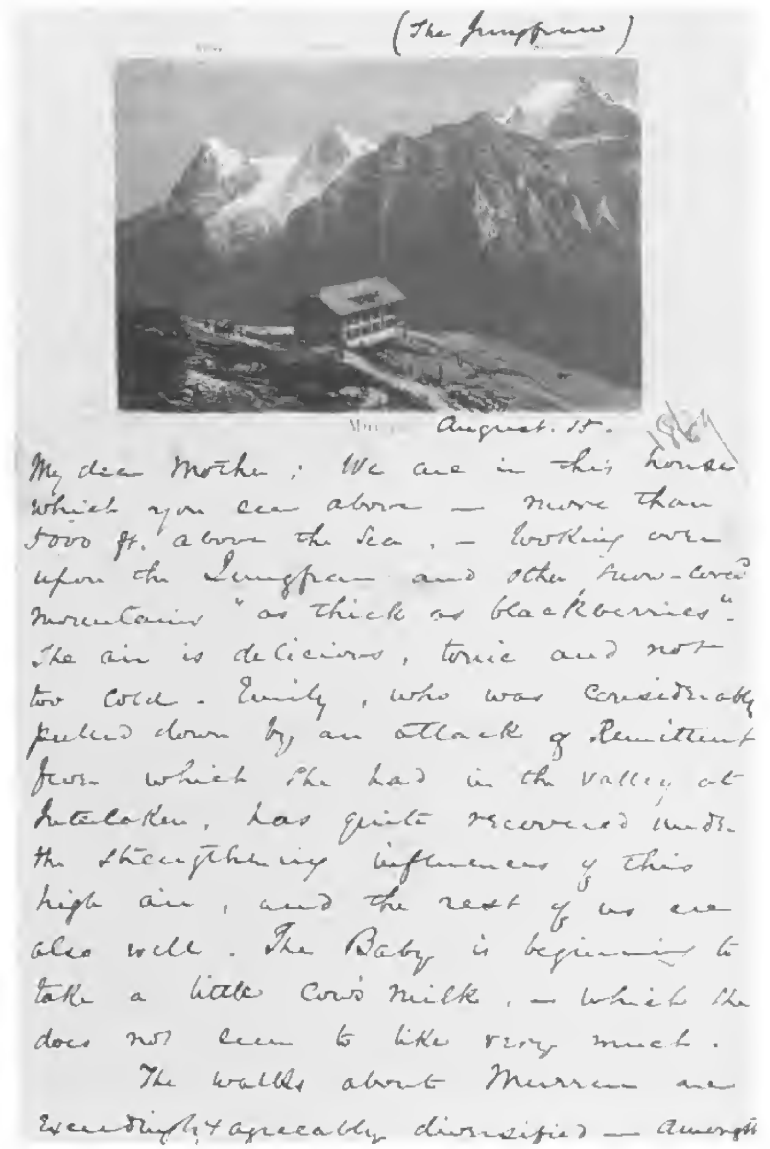 (The Jungfrau)
August. 15.
1869
My dear Mother; We are in this house
which you see above — more than
5000 ft. above the Sea, — looking over
upon the Jungfrau and other snow-cover'd
mountains "as thick as blackberries".
The air is delicious, tonic and not
too cold. Emily, who was considerably
pulled down by an attack of Remittent
fever which she had in the valley at
Interlaken, has quite recovered under
the strengthening influences of this
high air, and the rest of us are
also well. The Baby is beginning to
take a little Cow's milk, — which she
does not seem to like very much.
The walks about Murren are
Exceedingly & agreeably diversified — Amongst